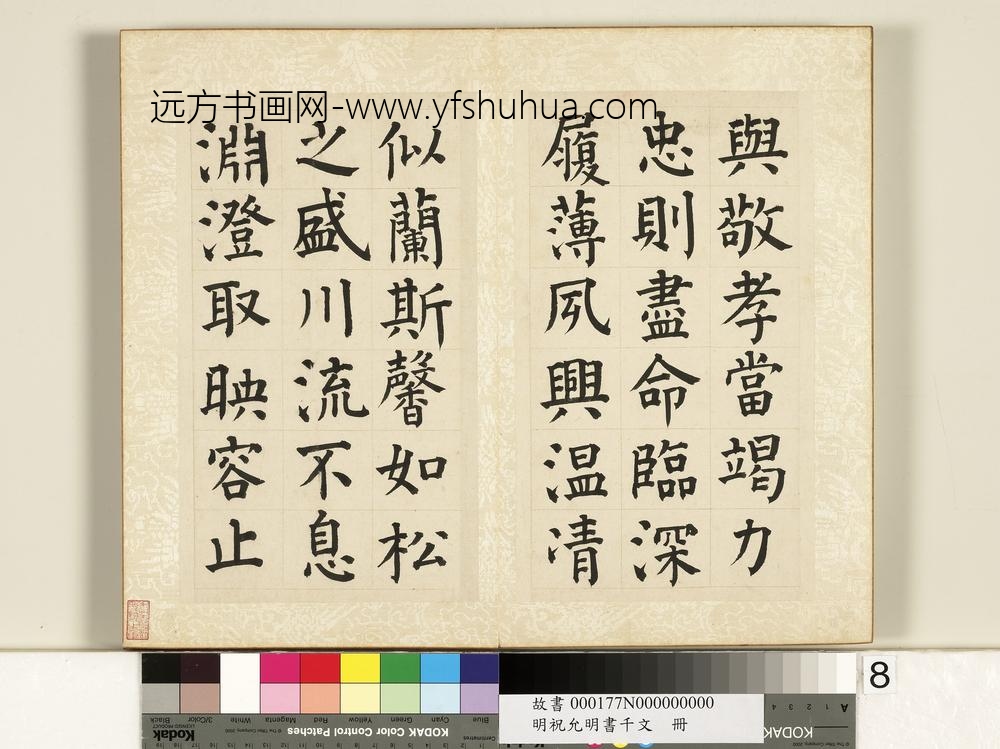 远方书画网-www.yfshuhua.com
與敬孝當竭力
忠則盡命臨深
履薄夙興温凊
似蘭斯馨如松
之盛川流不息
淵澄取映容止
8
故書 000177N000000000
明祝允明書千文 冊
Blue
Cyan
Green
Yellow
Red
Magenta
White
3/Color
Black
KODAK Color Control Patches
Kodak
KODAK
Centimetres
A 1 2 3 4